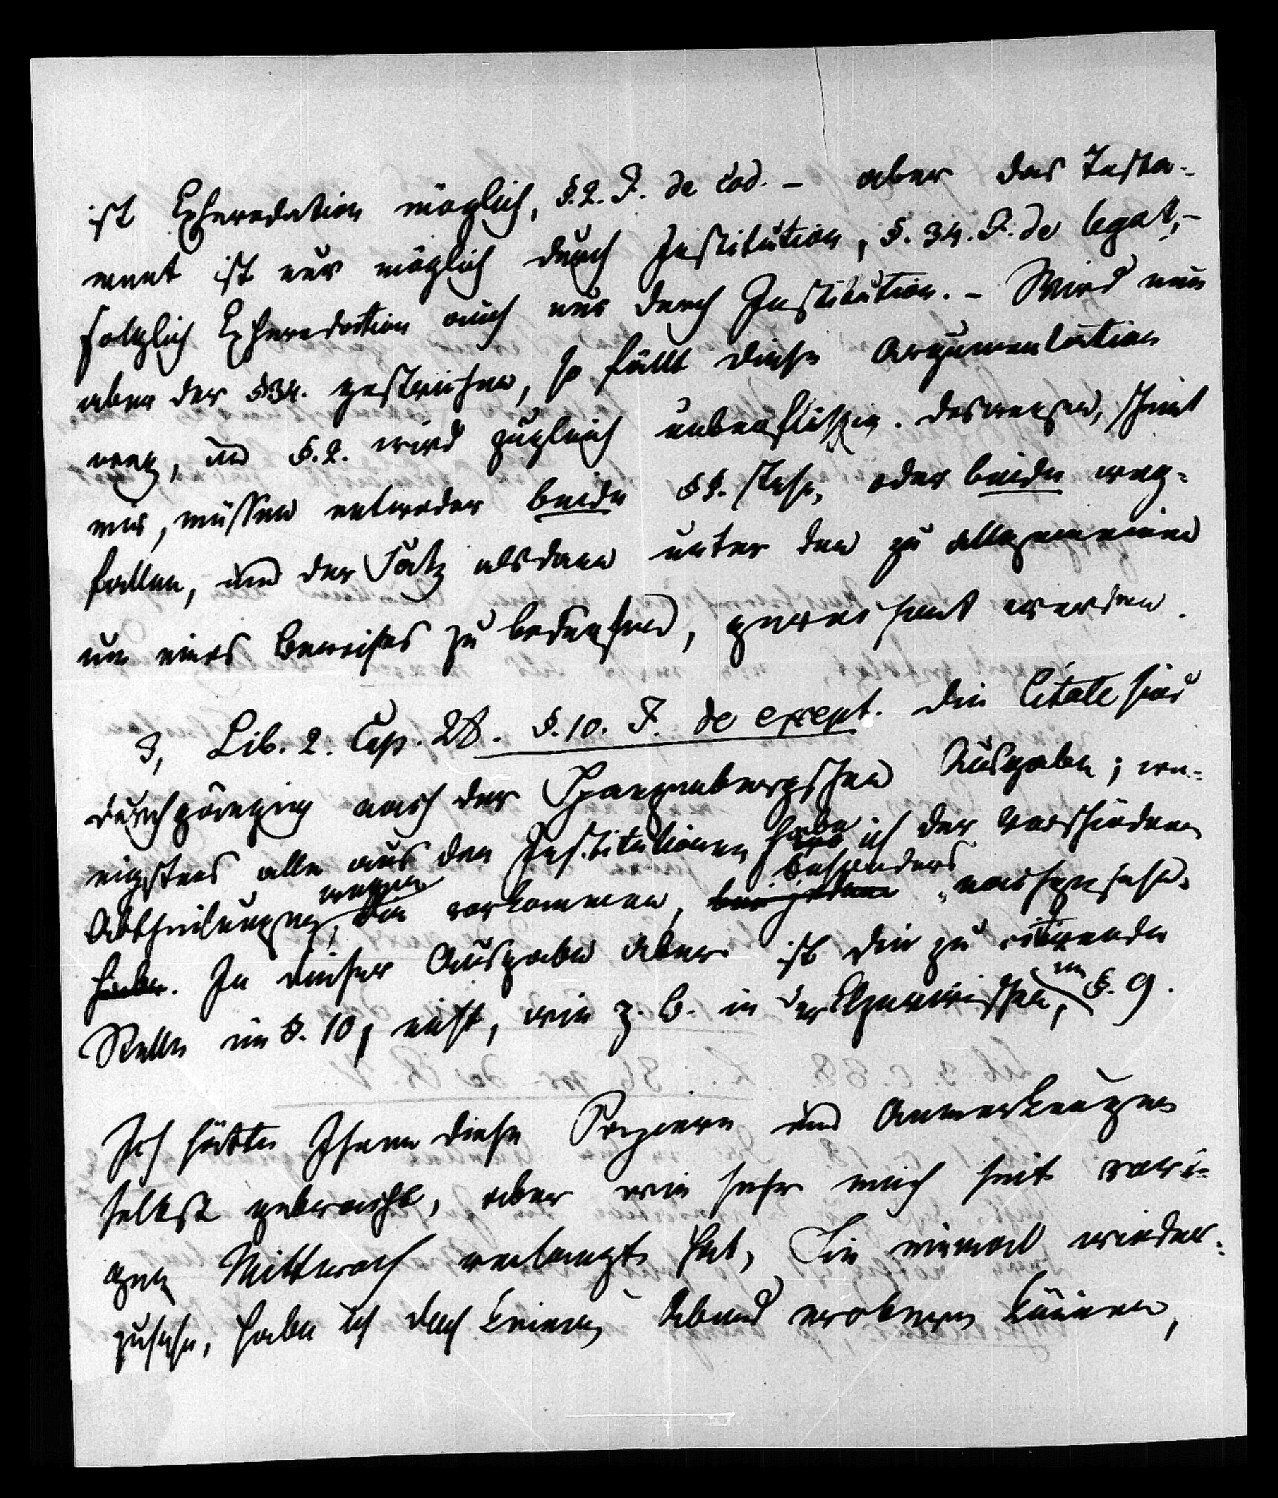 ist Exheredation möglich, §. 2. I. de cod. – aber das Testa-
ment ist nur möglich durch Institution, §. 34. I. de legat, –
folglich Exheredation auch nur durch Institution. – Wird nun
aber der §34. gestrichen, so fällt diese Argumentation
weg, und §. 2. wird zugleich unberflüßig. deswegen, scheint
mir, müssen entweder beide §§. stehen, oder beide weg-
fallen, und der Satz alsdann unter den zu allgemeinen
um eines Beweises zu bedürfen, gerechnet werden.
3, Lib. 2. Cap. 28. §. 10. I. de except. Die Citate sind
durchgängig nach der Spangenbergschen Ausgabe; we-
nigstens alle aus den Institutionen habe ich der verschiedenen
Abtheilungen wegen, die vorkommen, besonders nachgesehen
haben. In dieser Ausgabe aber ist die zu citirende
Stelle im §. 10, nicht, wie z. B. in der Elzevirischen, im §. 9.
Ich hätte Ihnen diese Papiere und Anmerkungen
selbst gebracht, aber wie sehr mich seit vori-
gen Mittwoch verlangt hat, Sie einmal wieder-
zusehen, habe ich doch keinen Abend erobern können,